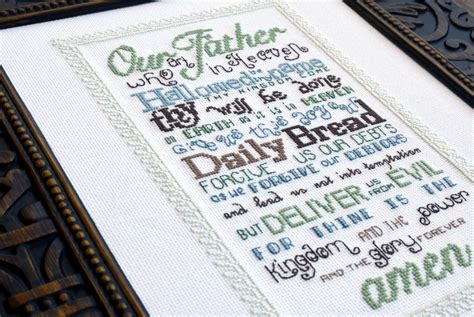 Our Father
who art in Heaven
Hallowed be thy Name
thy kingdom come
thy will be done
in EARTH as it is in HEAVEN
Give us this day our
Daily Bread
FORGIVE US OUR DEBTS
as we FORGIVE OUR DEBTORS
and lead us not into temptation
BUT DELIVER US FROM EVIL
FOR THINE IS THE
kingdom AND THE power
AND THE glory FOREVER
amen